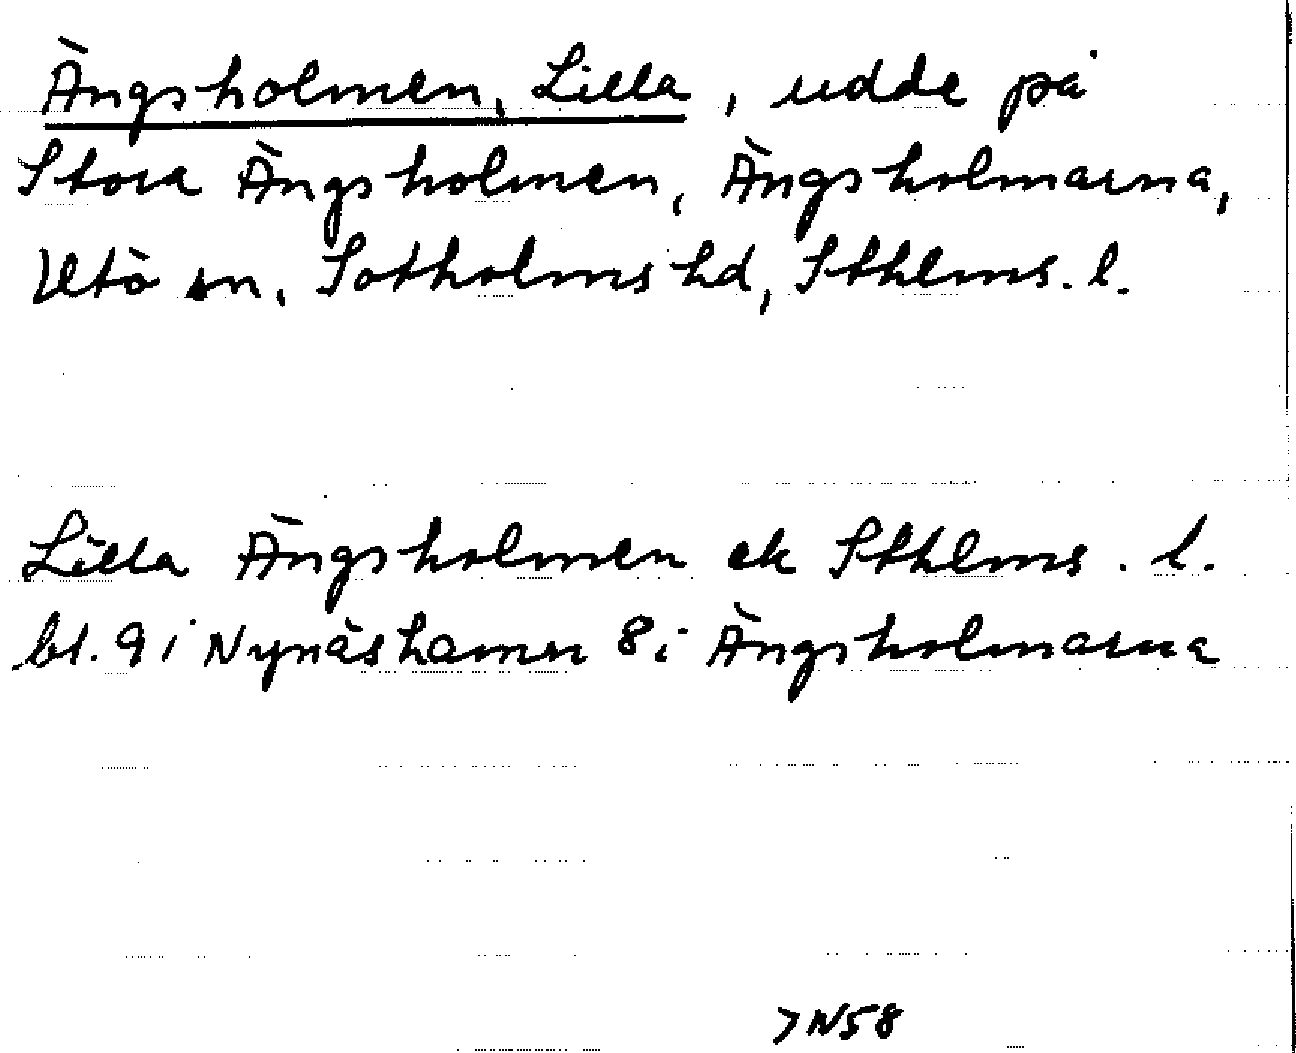 Ängsholmen, Lilla, udde på
Stora Ängsholmen, Ängsholmarna,
Utö sn, Sotholms hd, Sthlms. l.
Lilla Ängsholmen ek Sthlms. l.
bl. 9 i Nynäshamn 8 i Ängsholmarna
7N58